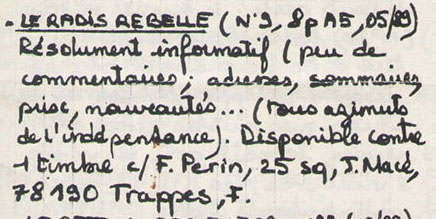 . LE RADIS REBELLE (N°9, 8p A5, 05/89)
Résolument informatif (peu de
commentaires; adresses, sommaires,
prix, nouveautés... (tous azimuts
de l'indépendance). Disponible contre
1 timbre c/ F. Perin, 25 sq, J. Macé,
78190 Trappes, F.